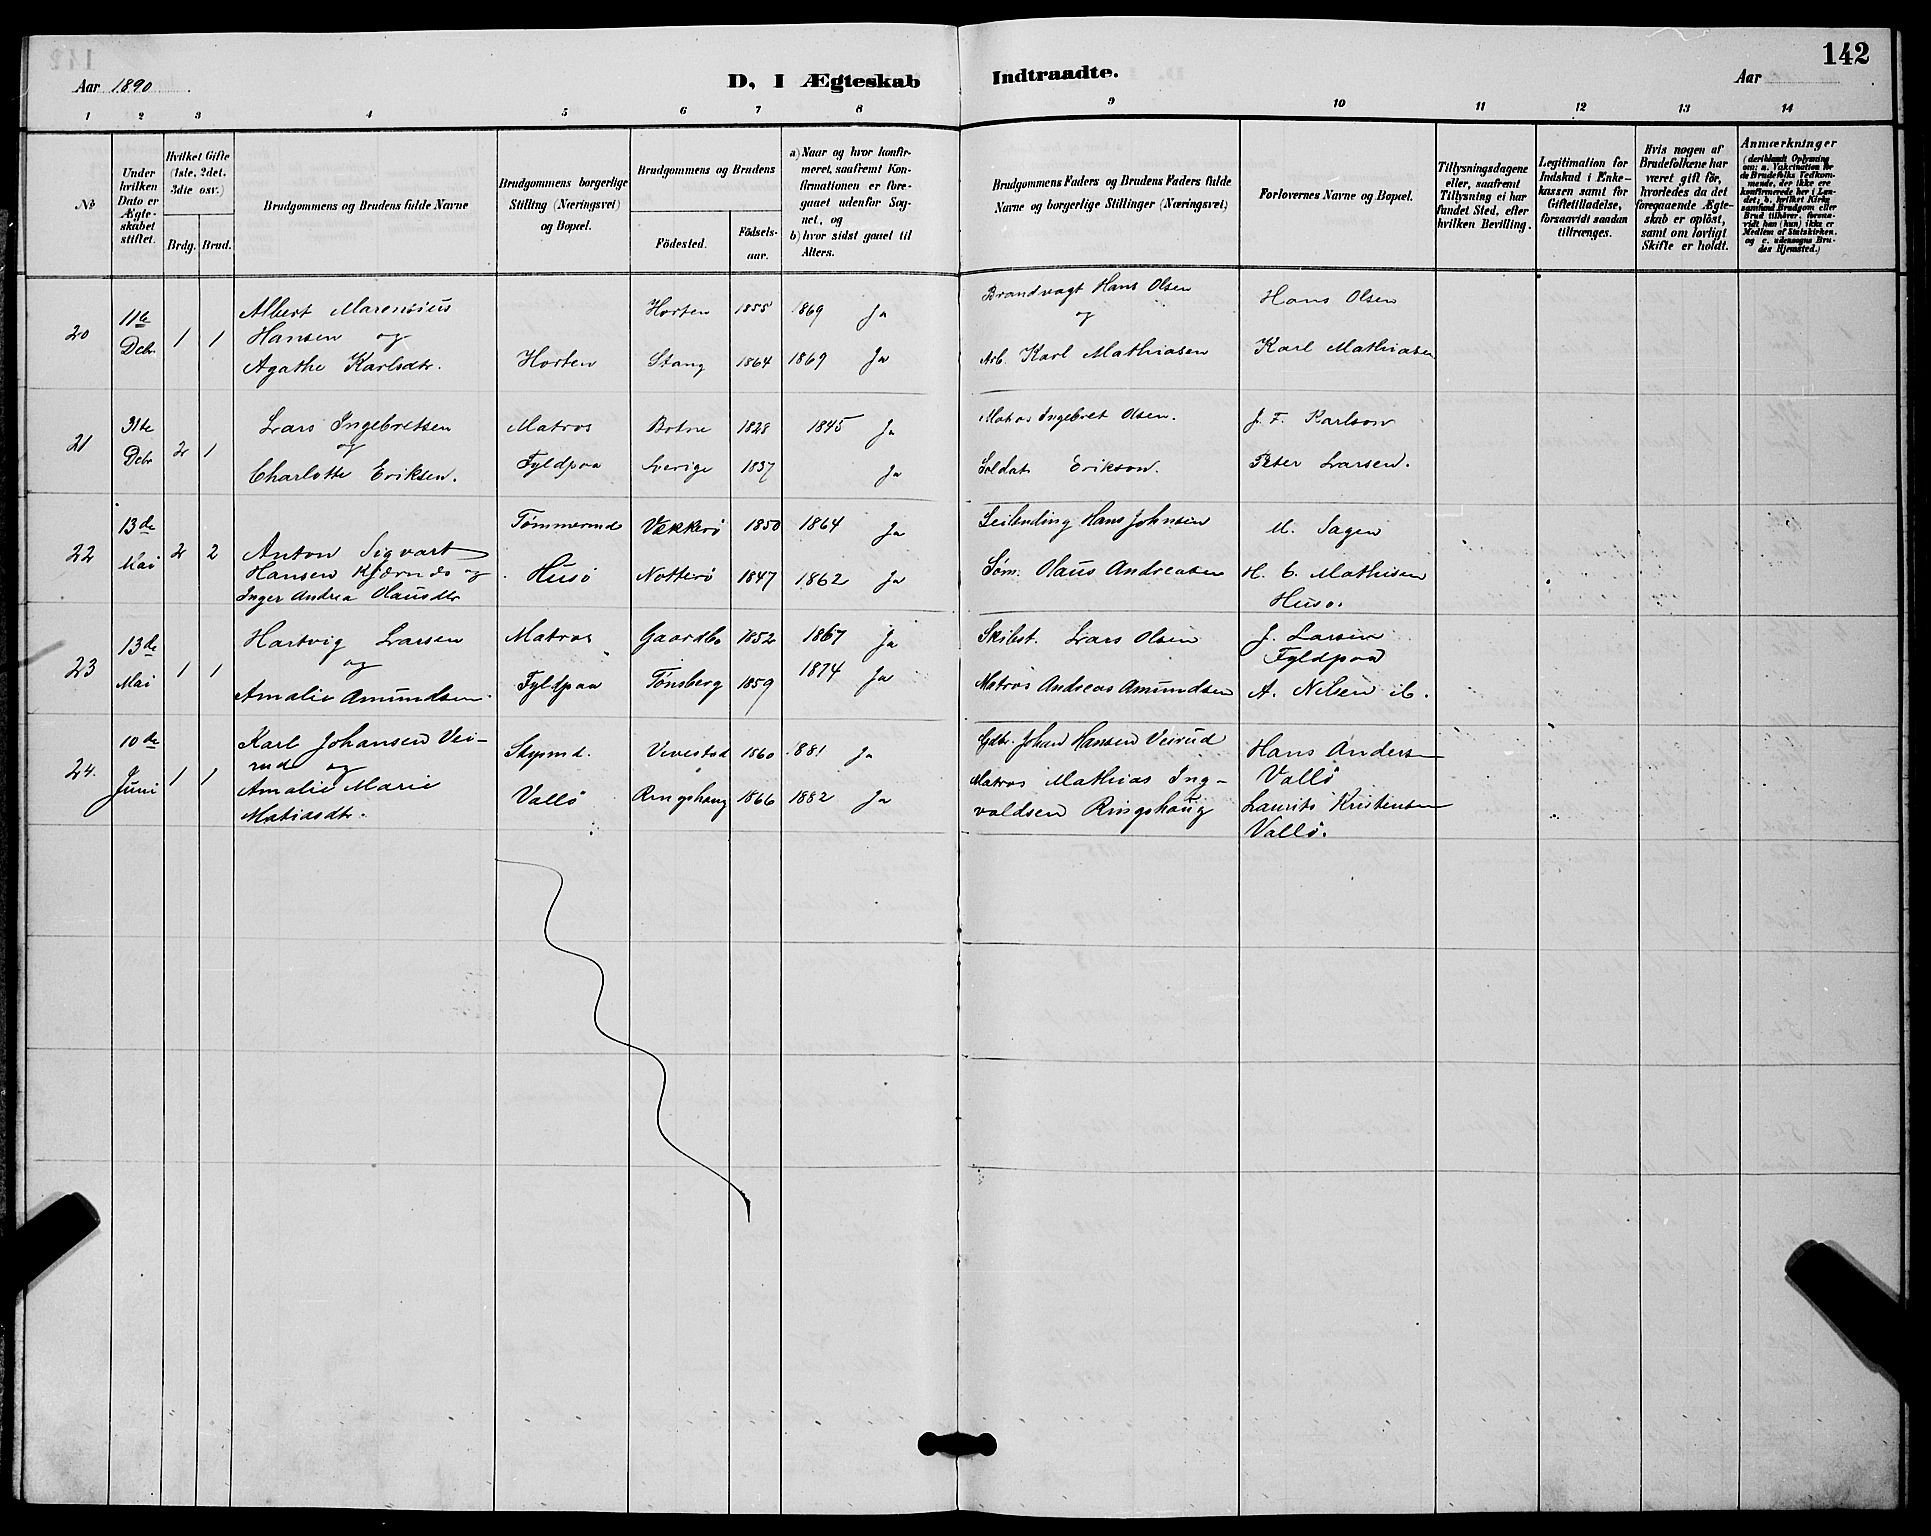 142
Aar 1890
D, I Ægteskab Indtraadte.
Aar
1 2 3 4 5 6 7 8 9 10 11 12 13 14
No
Under hvilken Dato er Ægteskabet stiftet.
Hvilket Gifte (1ste, 2det, 3die osv.)
Brdg. Brud.
Brudgommens og Brudens fulde Navne
Brudgommens borgerlige Stilling (Næringsvei) og Bopæl.
Brudgommens og Brudens
Födested.
Födsels-aar.
a) Naar og hvor konfirmeret, saafremt Konfirmationen er foregaaet udenfor Sognet, og
b) hvor sidst gaaet til Alters.
Brudgommens Faders og Brudens Faders fulde Navne og borgerlige Stillinger (Næringsvei)
Forlovernes Navne og Bopæl.
Tillysningsdagene eller, saafremt Tillysning ei har fundet Sted, efter hvilken Bevilling.
Legitimation for Indskud i Enkekassen samt for Giftetilladelse, forsaavidt saadan tiltrænges.
Hvis nogen af Brudefolkene har været gift för, hvorledes da det foregaaende Ægteskab er oplöst, samt om lovligt Skifte er holdt.
Anmærkninger
(deriblandt Oplysning om: a. Vakcination for de Brudefolks Vedkommende, der ikke ere konfirmerede her i Landet; b. hvilket Kirkesamfund Brudgom eller Brud tilhörer, forsaavidt han (hun) ikke er Medlem af Statskirken, og c. udensogns Brudes Hjemsted.)
20 11te Debr 1 1
Albert Marensius Hansen og
Agathe Karlsdtr.
Horten
Horten 1855 1869 Ja
Stang 1864 1869 Ja
Brandvagt Hans Olsen
og
Arb. Karl Mathiasen
Hans Olsen
Karl Mathiasen
21 31te Debr 2 1
Lars Ingebretsen
og
Charlotte Eriksen.
Matros
Fyldpaa
Botne 1828 1845 Ja
Sverige 1837 Ja
Matros Ingebret Olsen.
Soldat Erikson.
J. F. Karlson
Peter Larsen.
22 13de Mai 2 2
Anton Sigvart
Hansen Kjærnæs og
Inger Andrea Olausdtr
Tømmermd
Husö
Vekkerö 1850 1864 Ja
Notterö 1847 1862 Ja
Leilending Hans Johnsen
Søm. Olaus Andreasen
M. Sagen
H. C. Mathisen
Husö.
23 13de Mai 1 1
Hartvig Larsen
og
Amalie Amundsen.
Matros
Fyldpaa
Gaardbo 1852 1867 Ja
Tönsberg 1859 1874 Ja
Skibst. Lars Olsen
Matros Andreas Amundsen
J. Larsen
Fyldpaa
A. Nilsen ib.
24. 10de Juni 1 1
Karl Johansen Vei-
rud og
Amalie Marie
Matiasdtr.
Skypmd.
Vallö
Vivestad 1860 1881 Ja
Ringshaug 1866 1882 Ja
Gdbr. Johan Hansen Veirud
Matros Mathias Ing-
valdsen Ringshaug
Hans Anders
Vallö
Laurits Kristensen
Vallö.